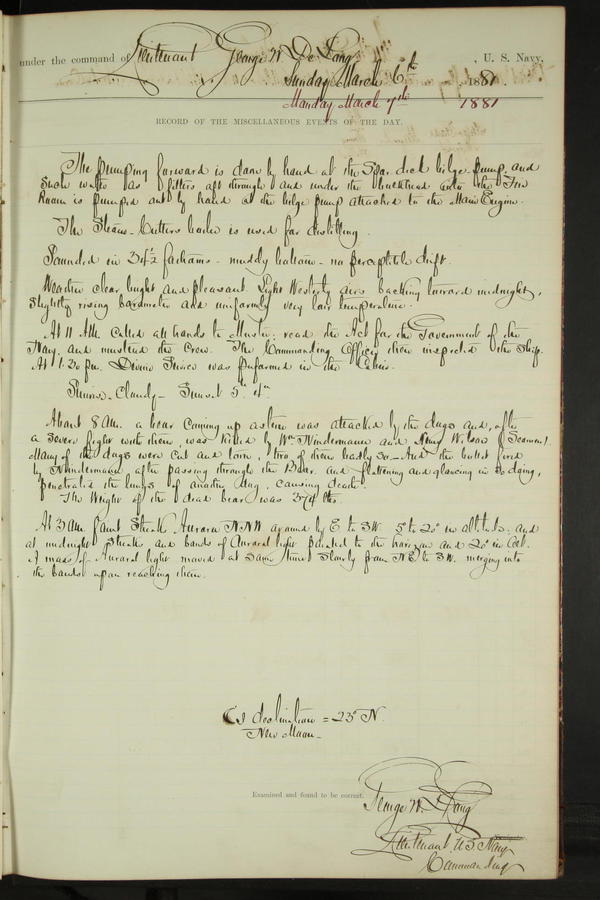 under the command of Lieutenant George W. De Long, U. S. Navy,
Sunday March 6th, 1881.
Monday March 7th 1881
RECORD OF THE MISCELLANEOUS EVENTS OF THE DAY.
The pumping forward is done by hand at the Spar deck bilge pump, and
such water as filters aft through and under the bulkhead into the Fire
Room is pumped out by hand at the bilge pump attached to the Main Engine.
The Steam-Cutters boiler is used for distilling.
Sounded in 34½ fathoms - muddy bottom - no perceptible drift.
Weather clear bright and pleasant. Light Westerly airs backing toward midnight,
slightly rising barometer and uniformly very low temperature.
At 11 AM. called all hands to Muster; read the Act for the Government of the
Navy, and mustered the Crew. The Commanding Officer then inspected the Ship.
At 1.30 pm. Divine Service was performed in the Cabin.
Sunrise - Cloudy - Sunset 5h 4m.
About 8 AM. a bear coming up astern was attacked by the dogs and, after
a severe fight with them, was killed by Wm Nindermann and Henry Wilson (Seamen).
Many of the dogs were cut and torn, two of them badly so - And the bullet fired
by Nindermann, after passing through the bear, and flattening and glancing in so doing,
penetrated the lungs of another dog, causing death.
The Weight of the dead bear was 374 lbs.
At 3 AM. faint Streak Aurora NNW around by E to SW. 5° to 20° in altitude; and
at midnight Streak and bands of Auroral light parallel to the horizon and 20° in
A mass of Auroral light moved at same time slowly from NE to SW. merging into
the bands upon reaching them.
= 23° N.
New Moon -
Examined and found to be correct.
George W. De Long
Lieutenant, U.S. Navy
Commanding